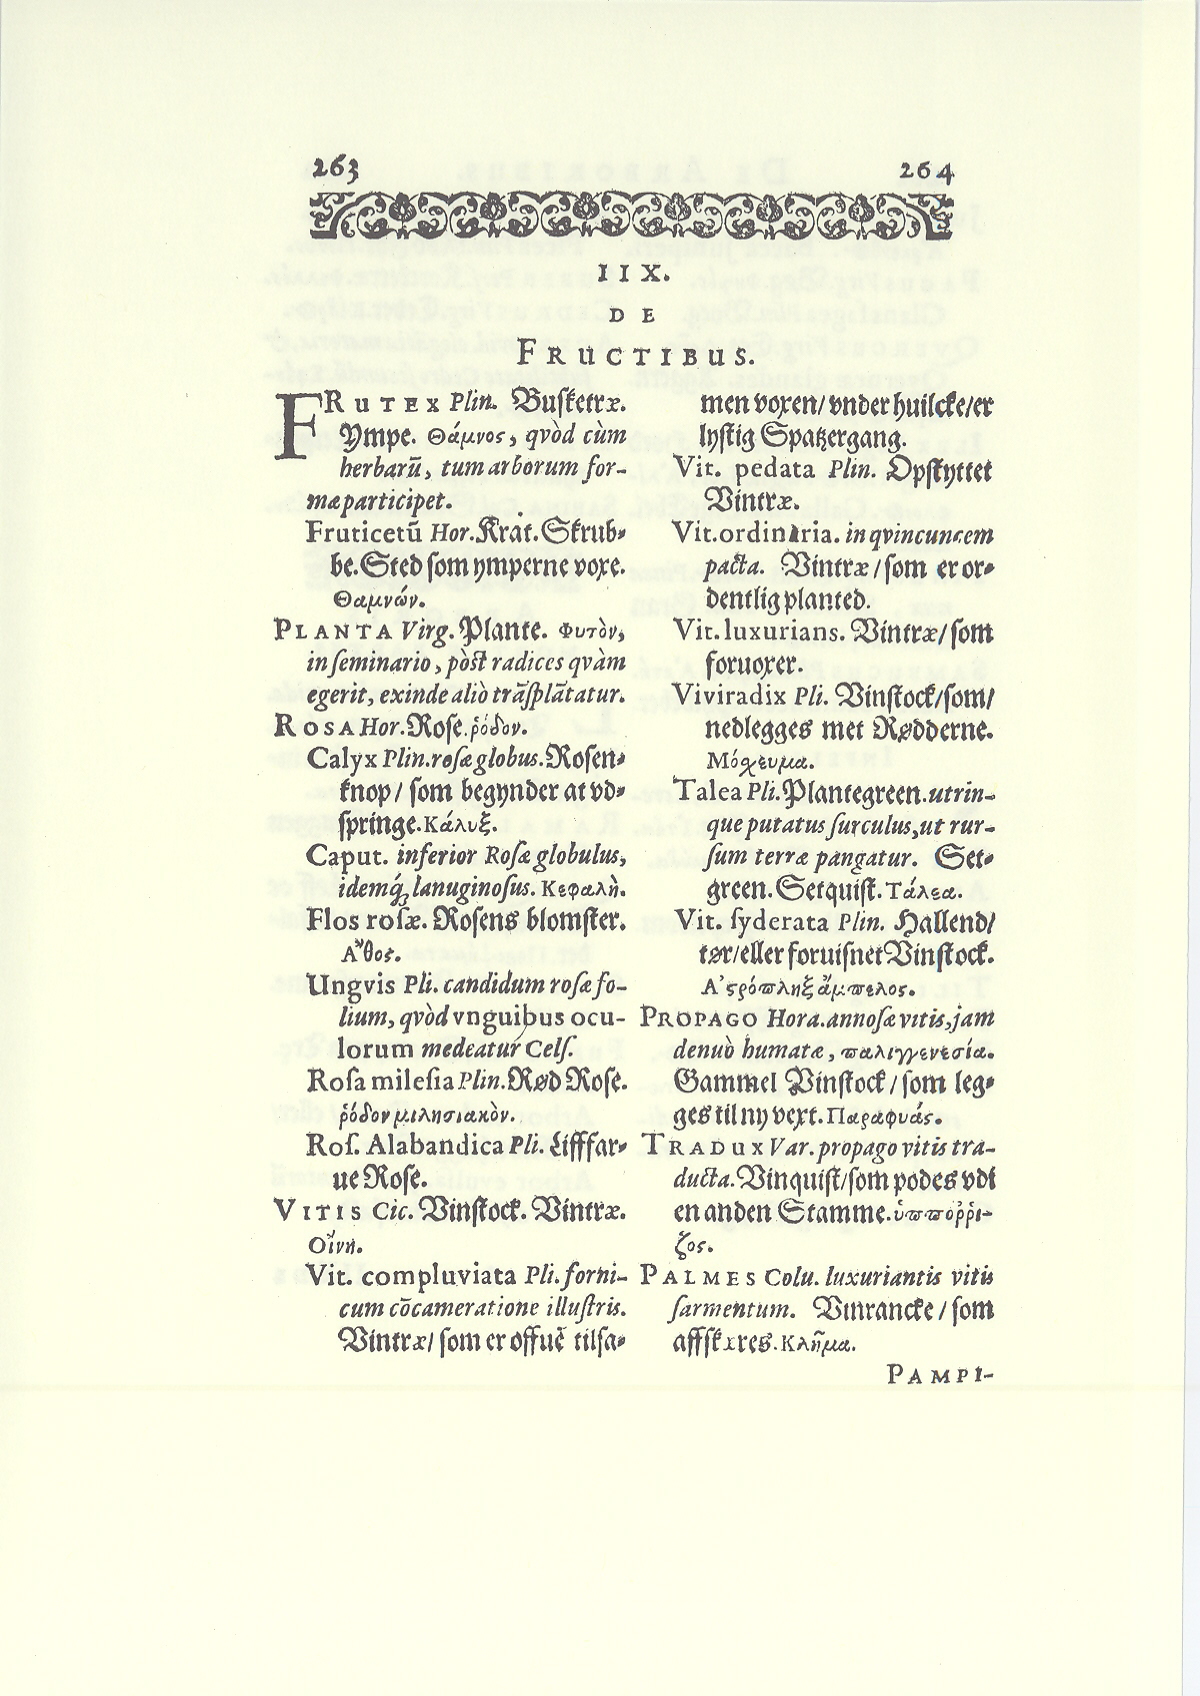 263
264
IIX.
DE
FRUCTIBUS.
FRUTEX Plin. Busketræ.
Ympe. Θάμνος, qvòd cùm
herbarū, tum arborum for-
mæ participet.
Fruticetū Hor. Krat. Skrub-
be. Sted som ymperne voxe.
Θαμνών.
PLANTA Virg. Plante. Φυτὸν,
in seminario, pòst radices qvàm
egerit, exinde aliò trāsplātatur.
ROSA Hor. Rose. ῥόδον.
Calyx Plin. rosæ globus. Rosen-
knop/ som begynder at vd-
springe. Κάλυξ.
Caput. inferior Rosæ globulus,
idemq́; lanuginosus. Κεφαλὴ.
Flos rosæ. Rosens blomster.
Ἄνθος.
Ungvis Pli. candidum rosæ fo-
lium, qvòd vnguibus ocu-
lorum medeatur Cels.
Rosa milesia Plin. Rød Rose.
ῥόδον μιλησιακὸν.
Ros. Alabandica Pli. Lifffar-
ue Rose.
VITIS Cic. Vinstock. Vintræ.
Οἴνη.
Vit. compluviata Pli. forni-
cum cōcameratione illustris.
Vintræ/ som er offuē tilsa-
men voxen/ vnder huilcke/ er
lystig Spatzergang.
Vit. pedata Plin. Opskyttet
Vintræ.
Vit. ordinaria. in qvincuncem
pacta. Vintræ/ som er or-
dentlig planted.
Vit. luxurians. Vintræ/ som
foruoxer.
Viviradix Pli. Vinstock/ som/
nedlegges met Rødderne.
Μόσχευμα.
Talea Pli. Plantegreen. utrin-
que putatus surculus, ut rur-
sum terræ pangatur. Set-
green. Setquist. Τάλεα.
Vit. syderata Plin. Hallend/
tør/ eller foruisnet Vinstock.
Ἀστρόπληξ ἄμπελος.
PROPAGO Hora. annosæ vitis, jam
denuò humatæ, παλιγγενεσία.
Gammel Vinstock/ som leg-
ges til ny vext. Παραφυάς.
TRADUX Var. propago vitis tra-
ducta. Vinquist/ som podes vdi
en anden Stamme. ὑπποῤῥι-
ζος.
PALMES Colu. luxuriantis vitis
sarmentum. Vinrancke/ som
affskæres. Κλῆμα.
PAMPI-